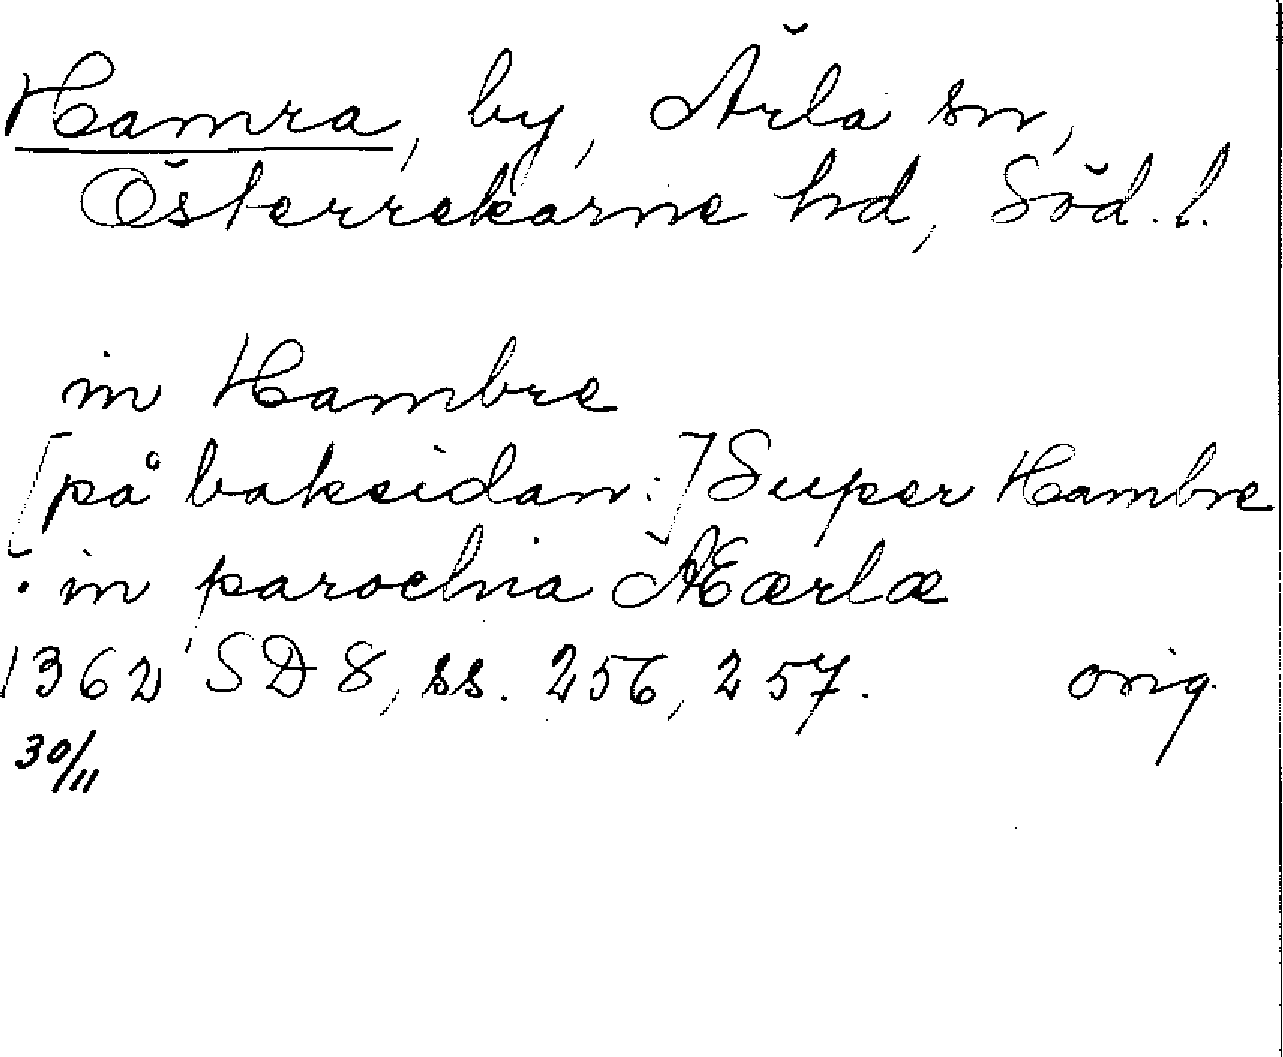 Hamra, by, Ärla sn,
Österrekarne hd, Söd. l.
in Hambre
[på baksidan:] Super Hambre
in parochia Æærlæ
1362 SD 8, ss. 256, 257. orig.
30/11